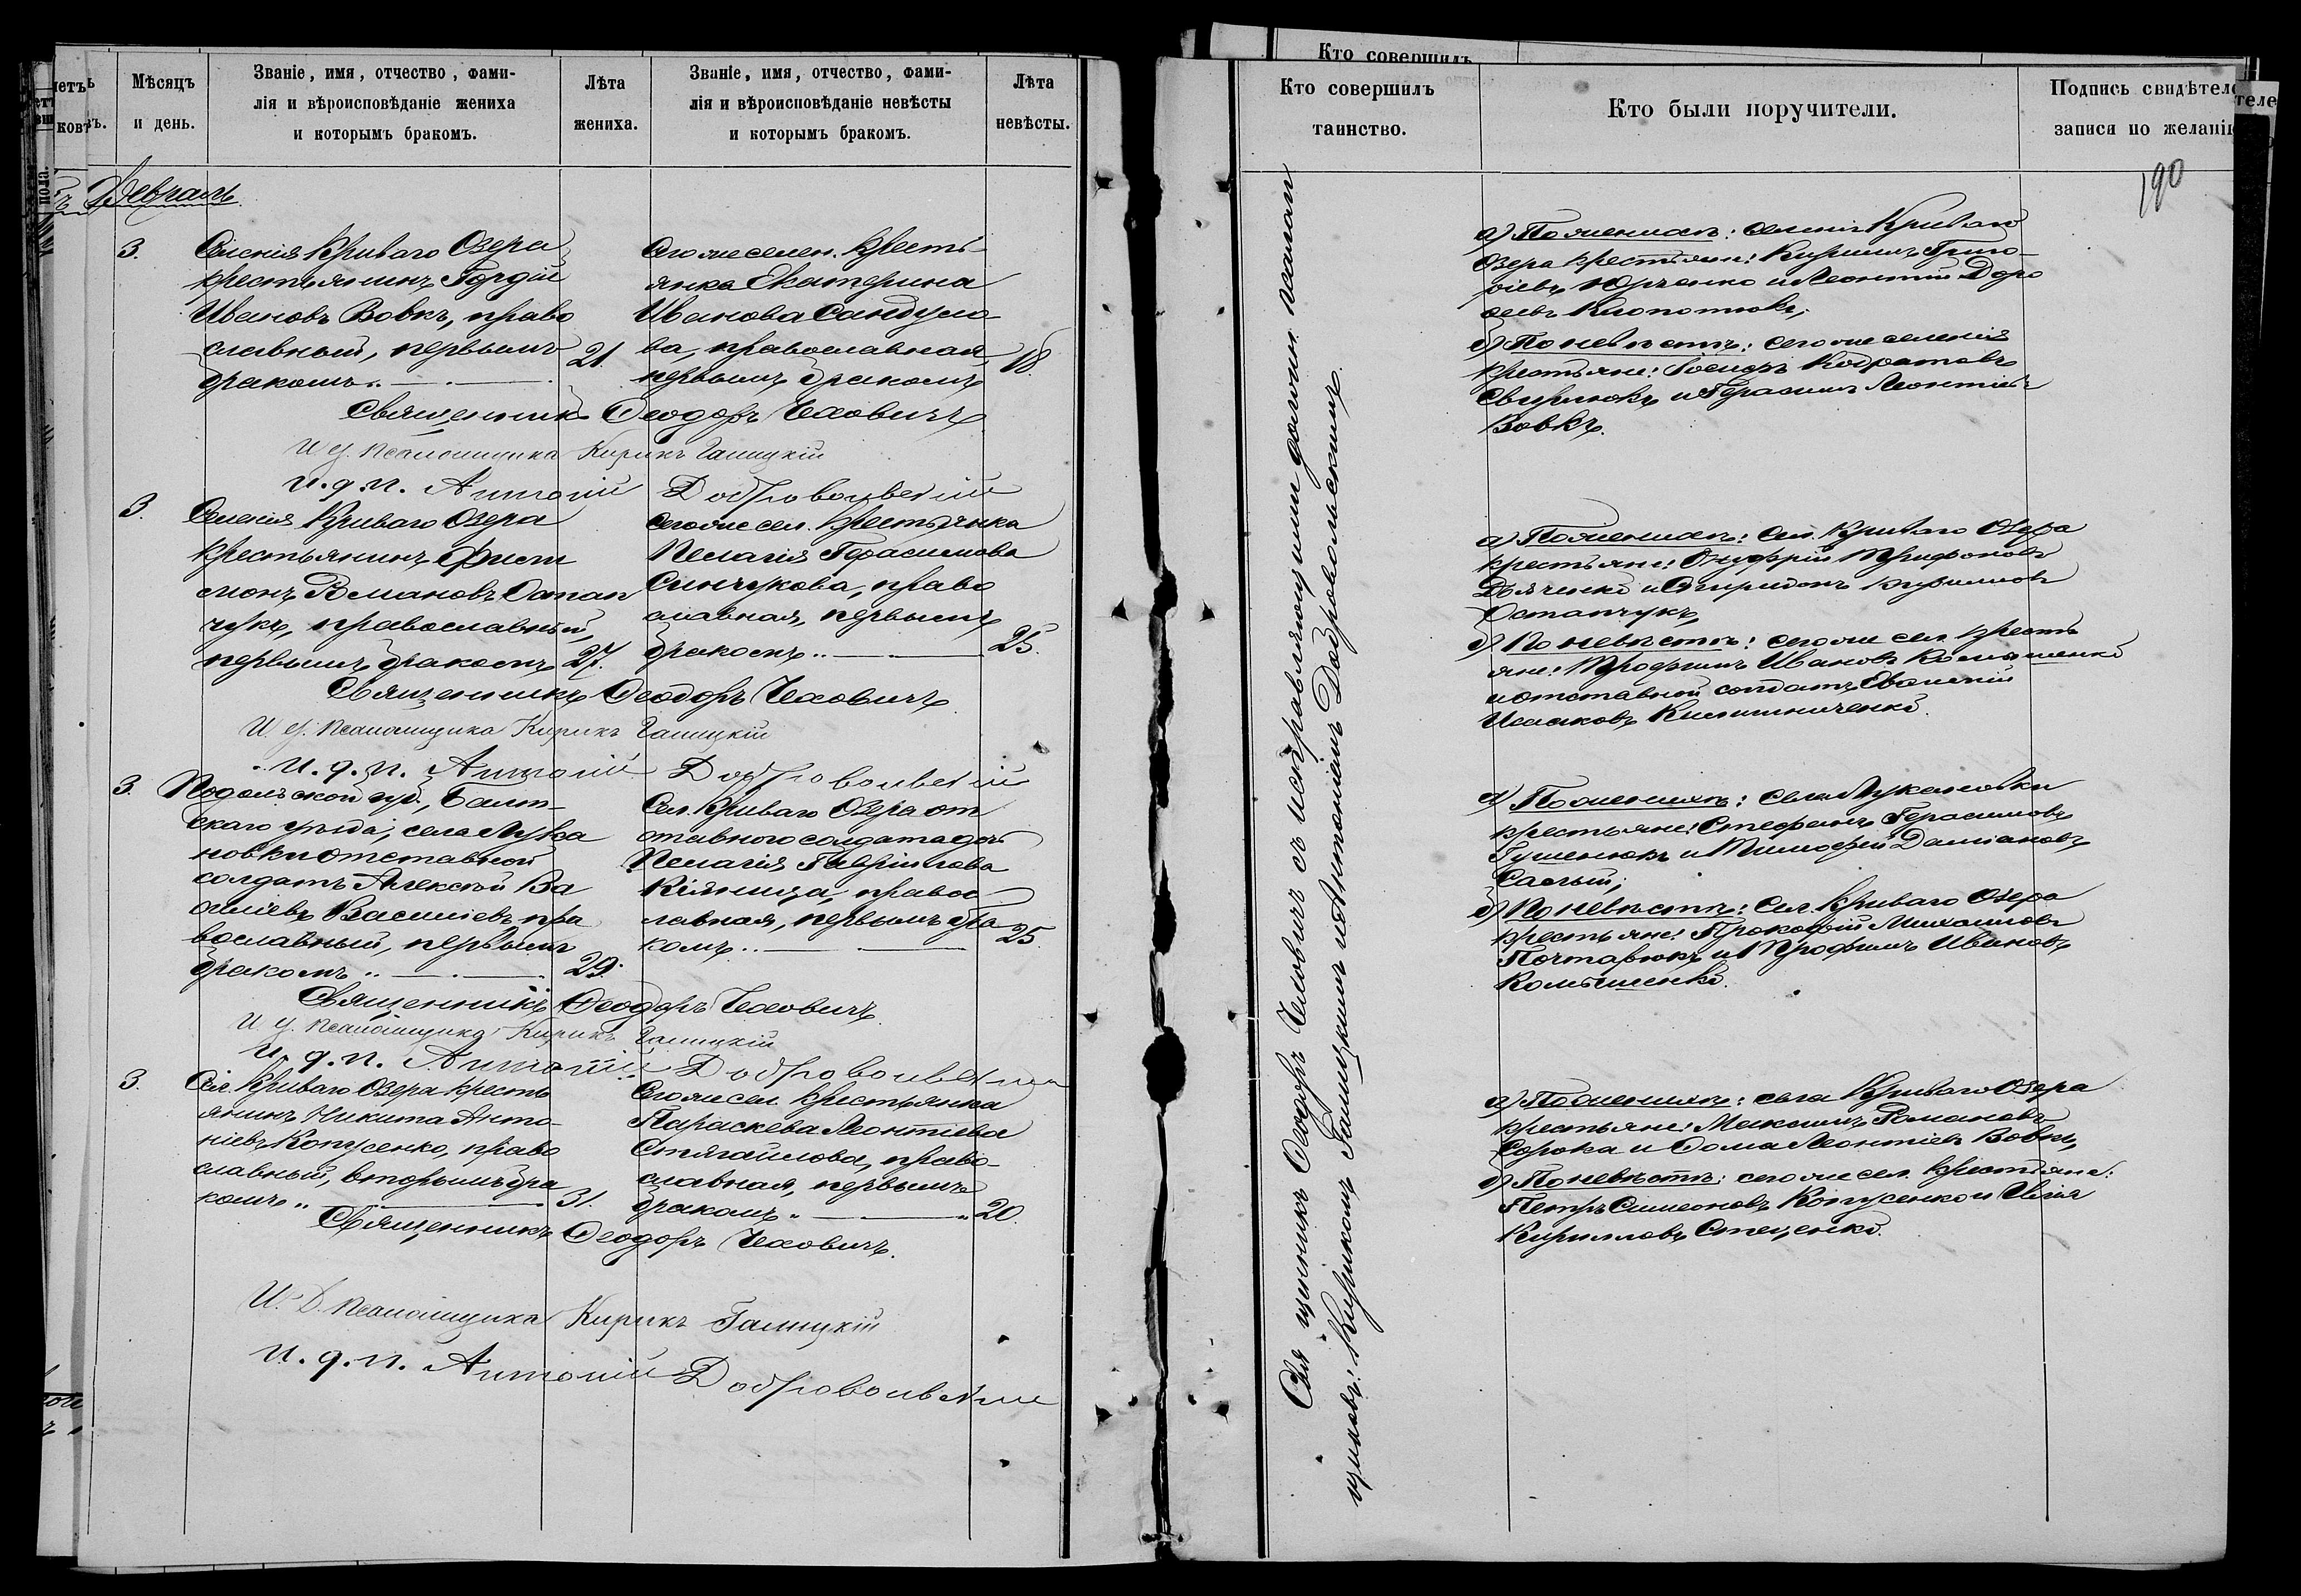 Мѣсяцъ и день.
Званіе, имя, отчество, фами-
лія и вѣроисповѣданіе жениха
и которымъ бракомъ.
Лѣта жениха.
Званіе, имя, отчество, фами-
лія и вѣроисповѣданіе невѣсты
и которымъ бракомъ.
Лѣта невѣсты.
Февраль
3.
Селенія Криваго Озера
крестьянинъ Гордій
Ивановъ Вовкъ, право
славный, первымъ
бракомъ..
21.
Сего же селен. кресть-
янка Екатерина
Иванова Сандуло-
ва, православная,
первымъ бракомъ
18.
Священникъ Ѳеодоръ Чеховичъ
И. д. Псаломщика Кирикъ Галицкій
И. д. п. Антоній Добровольскій
3.
Селенія Криваго Озера
крестьянинъ Фили
монъ Романовъ Остап
чукъ, православный,
первымъ бракомъ
27.
Сего же сел. крестьянка
Пелагія Герасимова
Синчукова, право
славная, первымъ
бракомъ..
25.
Священникъ Ѳеодоръ Чеховичъ
И. д. Псаломщика Кирикъ Галицкій
И. д. п. Антоній Добровольскій
3.
Подольской губ., Балт-
скаго уѣзда, села Лука
новки отставной
солдатъ Алексѣй Ва
силіевъ Василіевъ, пра
вославный, первымъ
бракомъ..
29.
Сел. Криваго Озера от
ставного солдата дочь
Пелагія Гавріилова
правос
лавная, первымъ бра
комъ..
25.
Священникъ Ѳеодоръ Чеховичъ
И. д. Псаломщика Кирикъ Галицкій
И. д. п. Антоній Добровольскій
3.
Сел. Криваго Озера кресть
янинъ Никита Анто-
ніевъ Копусенко, право
славный, вторымъ бра
комъ..
31.
Сего же сел. крестьянка
Параскева Леонтіева
Стягайлова, право-
славная, первымъ
бракомъ..
20.
Священникъ Ѳеодоръ Чеховичъ.
И. Д. Псаломщика Кирикъ Галицкій
И. д. п. Антоній Добровольскій
Кто совершилъ
Кто совершилъ
таинство.
Кто были поручители.
Подпись свидѣтеле
записи по желанію
190
Священникъ Ѳеодоръ Чеховичъ съ исправляющими должн. псалом
щиковъ: Кирикомъ Галицкимъ и Антоніемъ Добровольскимъ.
а) По женихѣ: селенія Криваго
Озера крестьяне: Кириллъ Григо-
ріевъ Юрченко и Леонтій Доро
ѳеевъ Клопотюкъ;
б) По невѣстѣ: сего же селенія
крестьяне: Іосифъ Кодратовъ
Свирнюкъ и Герасимъ Леонтіевъ
Вовкъ.
а) По женихѣ: Сел. Криваго Озера
крестьяне: Онуфрій Трифоновъ
Дьяченко и Спиридонъ
Остапчукъ,
б) По невѣстѣ: сего же сел. кресть
яне: Трофимъ Ивановъ Комышенко
и отставной солдатъ
Исааковъ
а) По женихѣ: села Лукановки
крестьяне: Стефанъ Герасимовъ
Гушенюкъ и Тимофей Даміановъ
б) По невѣстѣ: Сел. Криваго Озера
крестьяне: Прокофій Михаиловъ
Почтарюкъ и Трофимъ Ивановъ
Комышенко.
а) По женихѣ: села Криваго Озера
крестьяне: Максимъ Романовъ
Сорока и Ѳома Леонтіевъ Вовкъ,
б) По невѣстѣ: сего же сел. крестьяне:
Петръ Симеоновъ Копусенко и Илія
Кирилловъ Стеценко.